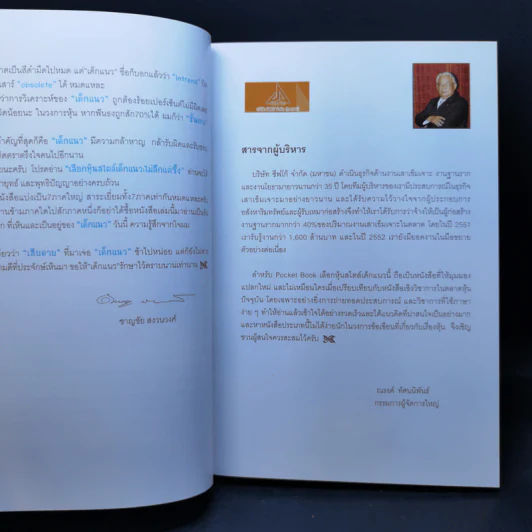 าดเป็นสีดำมืดไปหมด แต่"เด็กแนว" ชื่อก็บอกแล้วว่า "intrend"
เสาร์ "obsolete" ได้ หมดแหละ
ว่าการวิเคราะห์ของ "เด็กแนว" ถูกต้องร้อยเปอร์เซ็นต์ไม่มีผิด
น้อยนะ ในวงการหุ้น หากฟันธงถูกสัก70%ได้ ผมก็ว่า
สำคัญที่สุดก็คือ "เด็กแนว" มีความกล้าหาญ กล้ารับผิดและรับชอบ
นะครับ โปรดอ่าน "เลือกหุ้นสไตล์เด็กแนว:ไม่ลึกแต่ซึ้ง"
ายุทธ์ และพุทธิปัญญาอย่างครบถ้วน
หนังสือแบ่งเป็น7ภาคใหญ่ สาระเยี่ยมทั้ง7ภาคเท่ากันหมดแหละครับ
านข้ามภาคใดไปสักภาคหนึ่งก็อย่าได้ซื้อหนังสือเล่มนี้มาอ่านเป็นอัน
ก ที่เห็นและเป็นอยู่ของ "เด็กแนว" วันนี้ ความรู้สึกจากใจผม
ียวว่า "เซียนลาย" ที่มาเจอ "เด็กแนว" ช้าไปหน่อย แต่ก็ยังไม่สาย
ามดีที่ประจักษ์เห็นมา ขอให้"เด็กแนว"รักษาไว้ตราบนานเท่านาน
ชาญชัย สงวนวงศ์
สารจากผู้บริหาร
บริษัท ซีฟโก้ จำกัด (มหาชน) ดำเนินธุรกิจด้านงานเสาเข็มเจาะ งานฐานราก
และงานโยธามายาวนานกว่า 35 ปี โดยทีมผู้บริหารของเรามีประสบการณ์ในธุรกิจ
เสาเข็มเจาะมาอย่างยาวนาน และได้รับความไว้วางใจจากผู้ประกอบการ
อสังหาริมทรัพย์และผู้รับเหมาก่อสร้างซึ่งทำให้เราได้รับการว่าจ้างให้เป็นผู้ก่อสร้าง
งานฐานรากมากกว่า 40%ของปริมาณงานเสาเข็มเจาะในตลาด โดยในปี 2551
เรารับรู้งานกว่า 1,600 ล้านบาท และในปี 2552 เรายังมียอดงานในมือขยาย
ตัวอย่างต่อเนื่อง
สำหรับ Pocket Book เลือกหุ้นสไตล์เด็กแนวนี้ ถือเป็นหนังสือที่ให้มุมมอง
แปลกใหม่ และไม่เหมือนใครเมื่อเปรียบเทียบกับหนังสือเชิงวิชาการในตลาดหุ้น
ปัจจุบัน โดยเฉพาะอย่างยิ่งการถ่ายทอดประสบการณ์ และวิชาการที่ใช้ภาษา
ง่าย ๆ ทำให้อ่านแล้วเข้าใจได้อย่างรวดเร็วและได้แนวคิดที่น่าสนใจเป็นอย่างมาก
และหาหนังสือประเภทนี้ไม่ได้ง่ายนักในวงการข้อเขียนที่เกี่ยวกับเรื่องหุ้น จึงเชิญ
ชวนผู้สนใจควรสะสมไว้ครับ
ณรงค์ ทัศนนิพันธ์
กรรมการผู้จัดการใหญ่